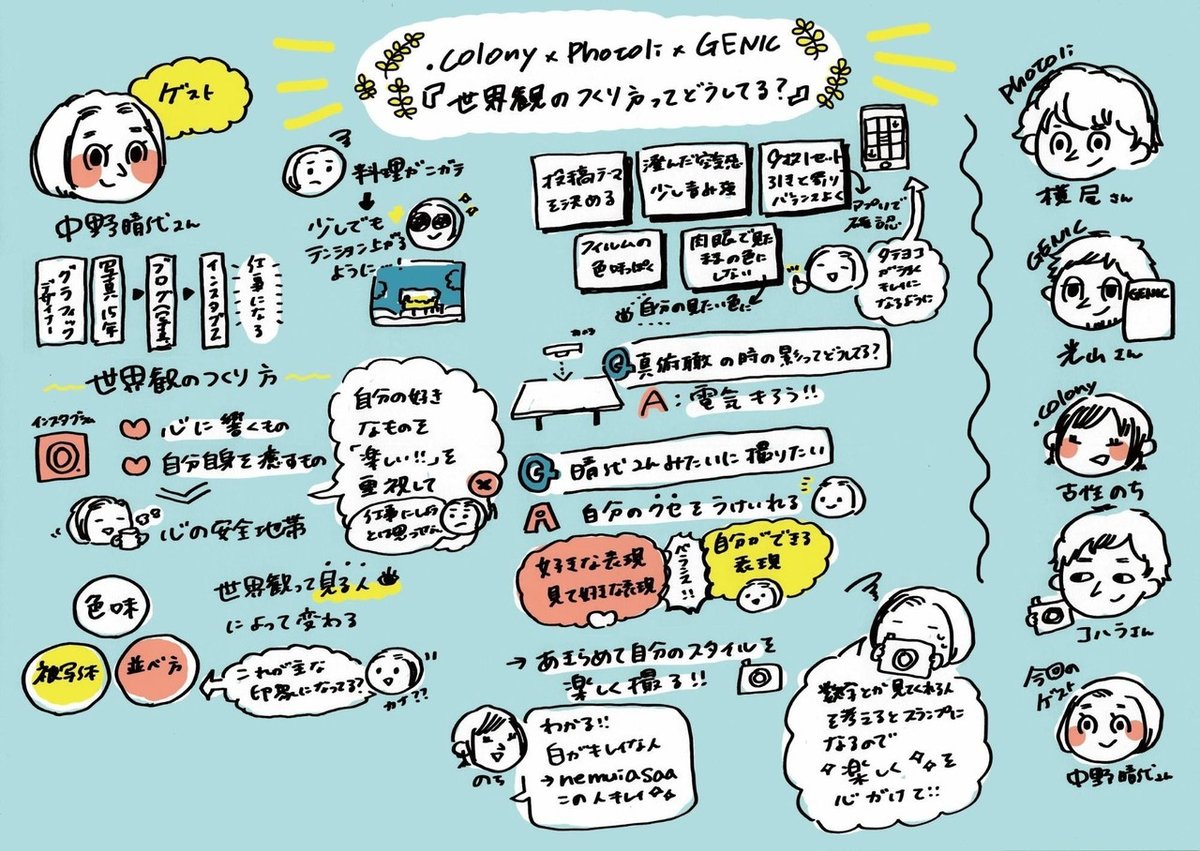 .colony × Photoli × GENIC
『世界観のつくり方ってどうしてる？』
ゲスト
中野晴代さん
グラフィック
デザイナー
写真15年
ブログ
インスタグラマー
仕事になる
料理がニガテ
少しでも
テンション上がる
ように…!
世界観のつくり方
インスタグラム
心に響くもの
自分自身を癒すもの
心の安全地帯
自分の好き
なものを
「楽しい!!」を
重視して
色味
被写体
並べ方
世界観って見る人
によって変わる
これが主な
印象になってる?
カナ??
投稿テーマ
を決める
澄んだ空気感
少し青み強
引きと寄り
バランスよく
アプリで
確認
フィルムの
色味っぽく
肉眼で見た
ままの色に
しない
自分の見たい色に
タテヨコ
がうまく
キレイに
なるように
Q 真俯瞰の時の影ってどうしてる?
A:電気きろう!!
Q 晴代さんみたいに撮りたい
A 自分のクセをうけいれる
好きな表現
見て好きな表現
バランス!!
自分ができる
表現
→あきらめて自分のスタイルを
楽しく撮る!!
のち
わかる!!
白がキレイな人
→nemuiasaa
この人キレイ
数字とか見てくれる人
を考えるとスランプに
なるので
楽しくを
心がけて!!
Photoli
横尾さん
GENIC
GENIC
光山さん
.colony
古性のち
コハラさん
今回の
ゲスト
中野晴代さん